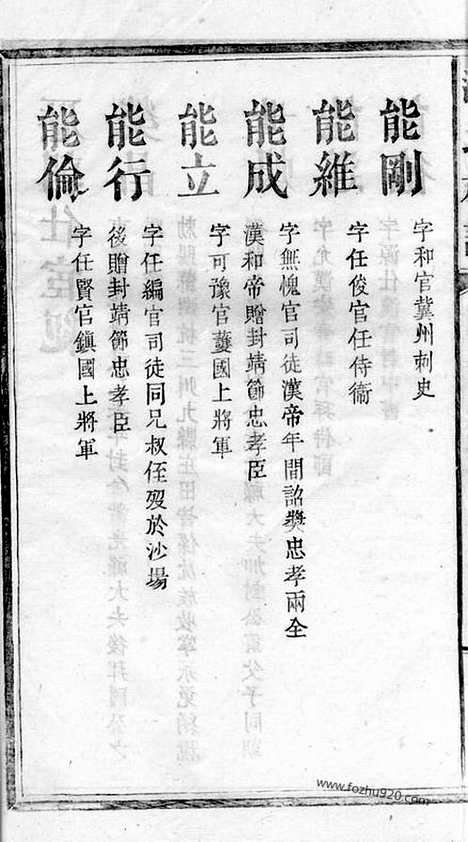 能剛
字和官冀州刺史
能維
字任俊官任侍衛
能成
字無愧官司徒漢帝年間詔獎忠孝兩全
漢和帝贈封靖節忠孝臣
能立
字可豫官護國上將軍
能行
字任編官司徒同兄叔侄歿於沙場
後贈封靖節忠孝臣
能倫
字任賢官鎮國上將軍
www.fozhu920.com